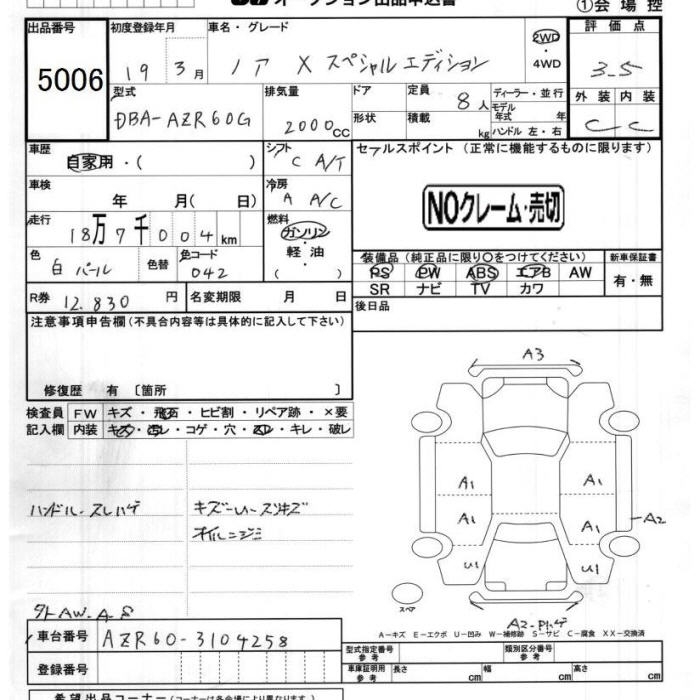 オークション出品申込書
①会場控
出品番号
5006
初度登録年月
19 3月
車名・グレード
ノア X スペシャルエディション
2WD
・4WD
評価点
3.5
型式
DBA-AZR60G
排気量
2000cc
ドア
形状
定員
8人
積載
kg
ディーラー・並行
モデル年式 年
ハンドル 左・右
外装 内装
C C
車歴
自家用・( )
シフト
C A/T
セールスポイント (正常に機能するものに限ります)
NOクレーム・売切
車検
年 月( 日)
冷房
A A/C
走行
18万7千004km
燃料
ガソリン・軽油
( )
色
白パール
色替
色コード
042
装備品 (純正品に限り○をつけてください)
PS PW ABS エアB AW
SR ナビ TV カワ
新車保証書
有・無
R券 12.830円
名変期限 月 日
後日品
注意事項申告欄 (不具合内容等は具体的に記入して下さい)
修復歴 有 〔箇所 〕
検査員記入欄
FW キズ・飛石・ヒビ割・リペア跡・×要
内装 キズ・汚レ・コゲ・穴・スレ・キレ・破レ
ハンドル-スレハゲ
オイルニジミ
A3
A1 A1
A1 A1
A2
U1 U1
スペア
A-キズ E-エクボ U-凹み W-補修跡 S-サビ C-腐食 XX-交換済
車台番号 AZR60-3104258
登録番号
型式指定番号 参考
類別区分番号 参考
車庫証明用 参考 長さ cm 幅 cm 高さ cm
希望出品コーナー (コーナーは各会場により異なります)